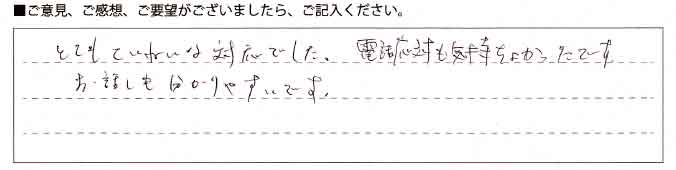 ■ご意見、ご感想、ご要望がございましたら、ご記入ください。
とてもていねいな対応でした。電話応対も気持ちよかったです
お話しも分かりやすいです。